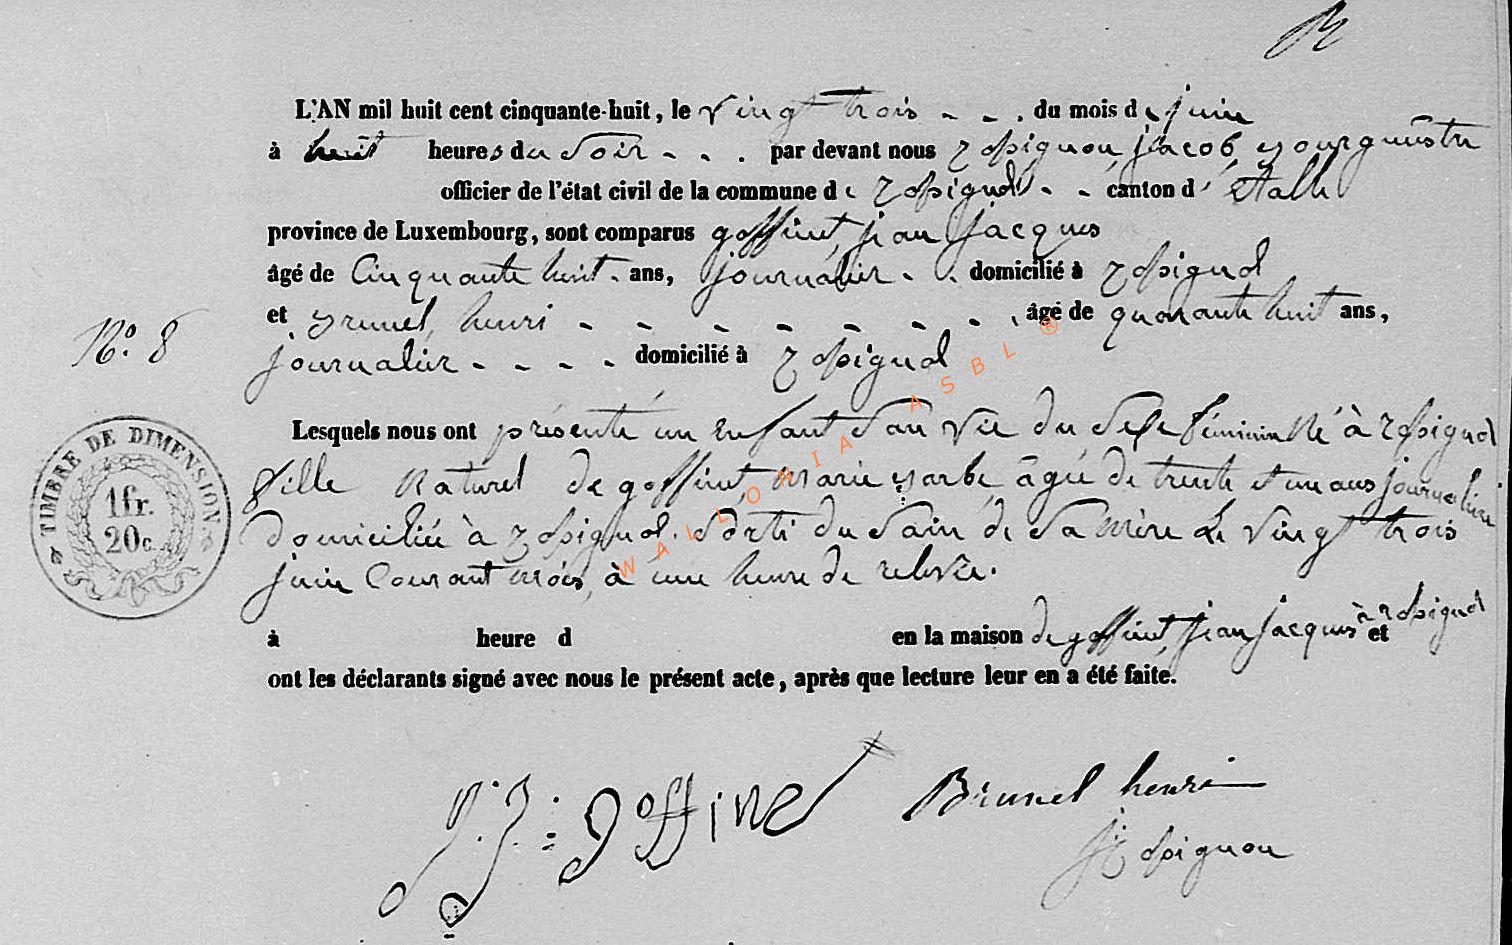 L'AN mil huit cent cinquante-huit, le vingt trois - - . du mois de juin
à huit heures du Soir - - . par devant nous Rossignon, jacob, bourguestre
officier de l'état civil de la commune de Rossignol - - canton d'étalle
province de Luxembourg, sont comparus goffinet, jean jacques
âgé de Cinquante huit - ans, journalier - - domicilié à Rossignol
et brunel, henri - - - - - - - , âgé de quarante huit ans,
N° 8
journalier - - - - domicilié à Rossignol
Lesquels nous ont présenté un Enfant d'en vie du Sexe féminin Né à Rossignol
TIMBRE DE DIMENSION
1 fr.
20 c.
fille Naturel de goffinet, marie barbe, âgée de trente et un ans journalière
domiciliée à Rossignol. Sorti du Sain de Sa Mère Le vingt trois
juin Courant mois, à une heure de relevée.
à heure d en la maison de goffinet, jean jacques à Rossignol et
ont les déclarants signé avec nous le présent acte, après que lecture leur en a été faite.
J. J. goffinet
Brunel henri
J Rossignon
WALLONIA ASBL ®